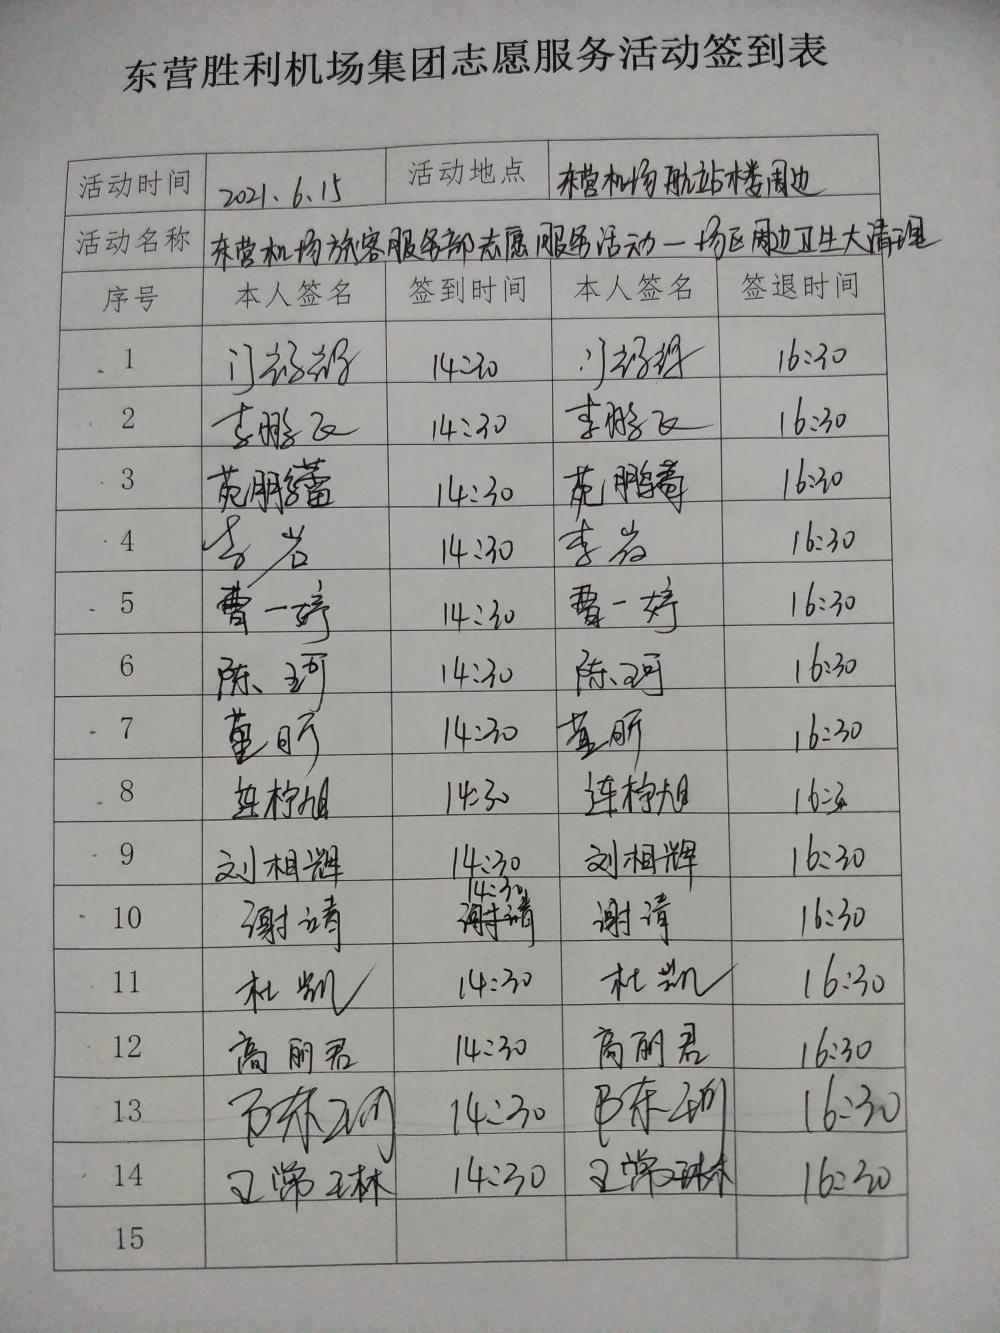 东营胜利机场集团志愿服务活动签到表
活动时间 2021.6.15 活动地点 东营机场航站楼周边
活动名称 东营机场旅客服务部志愿服务活动一场区周边卫生大清理
序号 本人签名 签到时间 本人签名 签退时间
1 14:30 16:30
2 李鹏飞 14:30 李鹏飞 16:30
3 苑鹏蕾 14:30 苑鹏 16:30
4 李岩 14:30 李岩 16:30
5 曹一婷 14:30 曹一婷 16:30
6 陈珂 14:30 陈珂 16:30
7 董昕 14:30 董昕 16:30
8 连柠旭 14:30 连柠旭 16:30
9 刘相辉 14:30 刘相辉 16:30
10 谢靖 14:30 谢靖 16:30
11 杜凯 14:30 杜凯 16:30
12 高丽君 14:30 高丽君 16:30
13 14:30 16:30
14 王常琳 14:30 王常琳 16:30
15